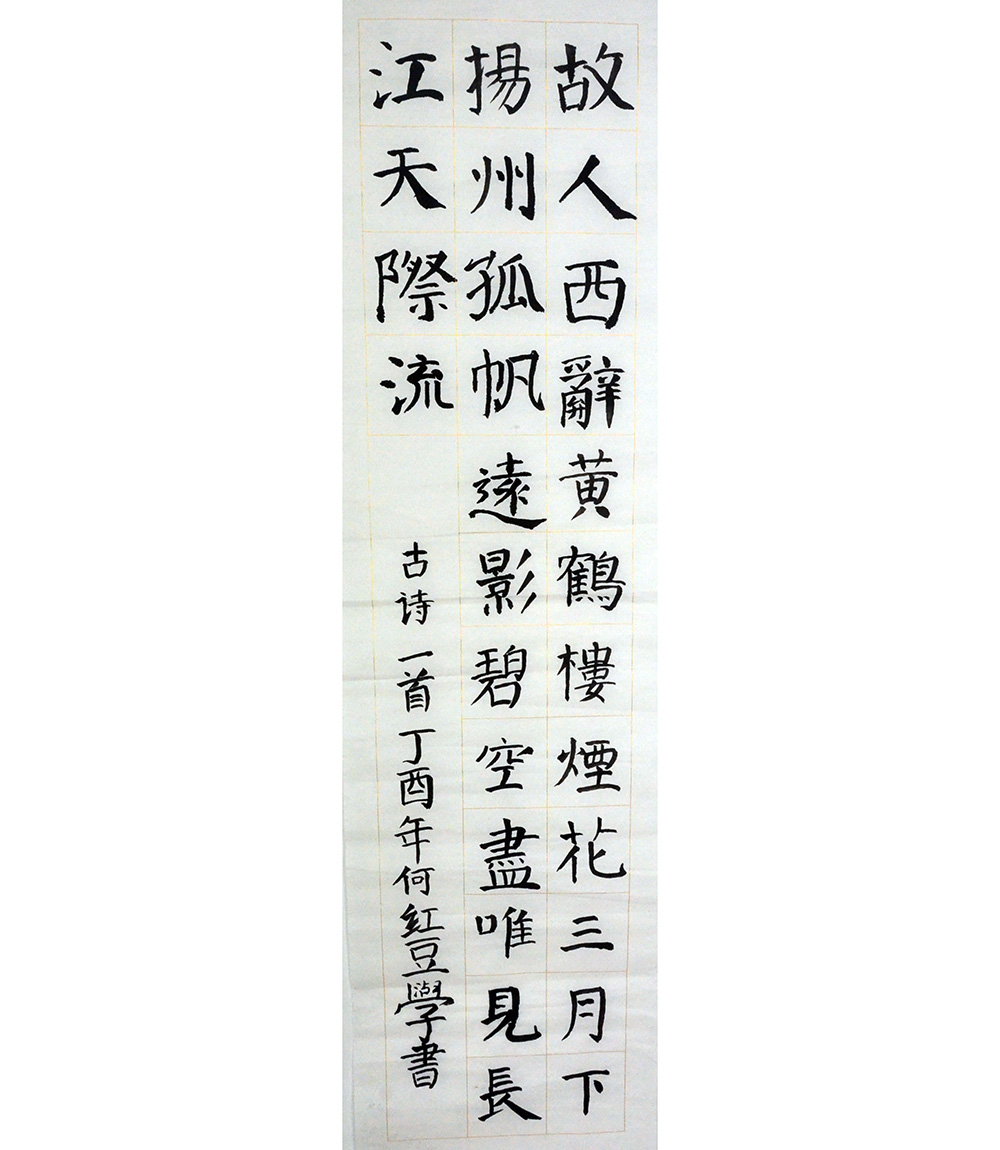 故人西辭黄鶴樓煙花三月下
揚州孤帆遠影碧空盡唯見長
江天際流
古诗一首丁酉年何紅豆學書